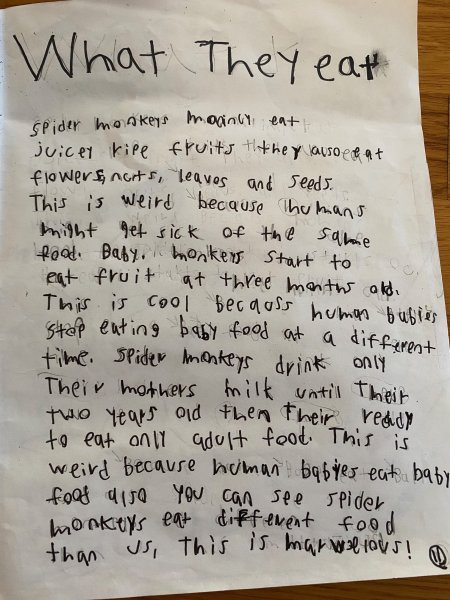 What They eat
spider monkeys mainly eat
juicey ripe fruits they also eat
flowers, nuts, leaves and seeds.
This is weird because humans
might get sick of the same
food. Baby. monkeys start to
eat fruit at three months old.
This is cool becauss human babies
stop eating baby food at a different
time. spider monkeys drink only
Their mothers milk until Their
two years old then Their ready
to eat only adult food. This is
weird because human babyes eat baby
food also you can see spider
monkeys eat different food
than us, This is marvelious!